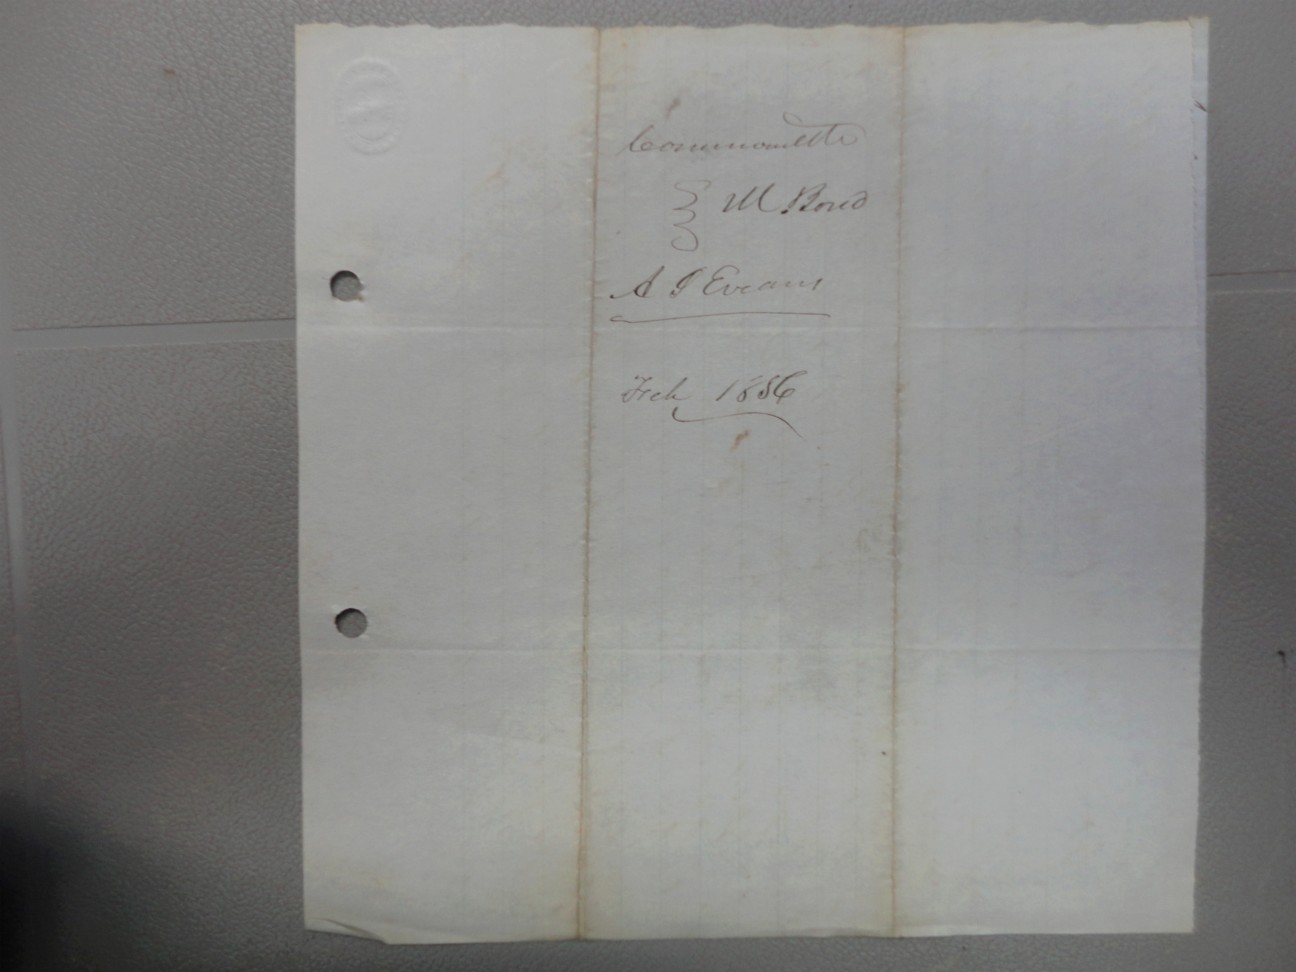 Commonwlth
} M Bond
A J Eveans
Feb 1856